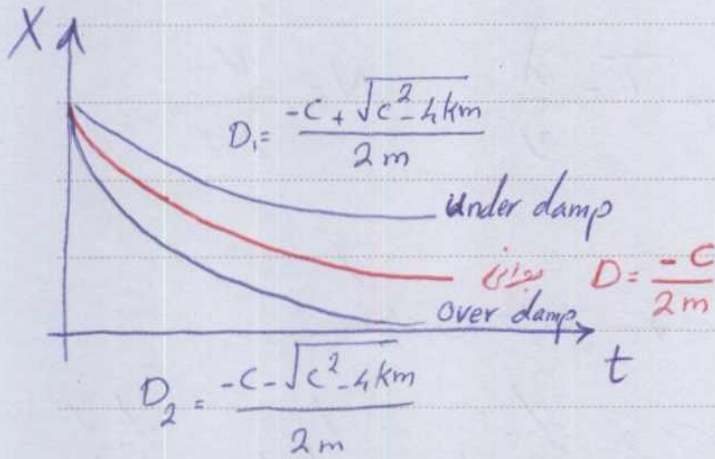 X
D₁ = (-c + √(c² - 4km)) / 2m
under damp
بحرانی D = -c / 2m
over damp
t
D₂ = (-c - √(c² - 4km)) / 2m